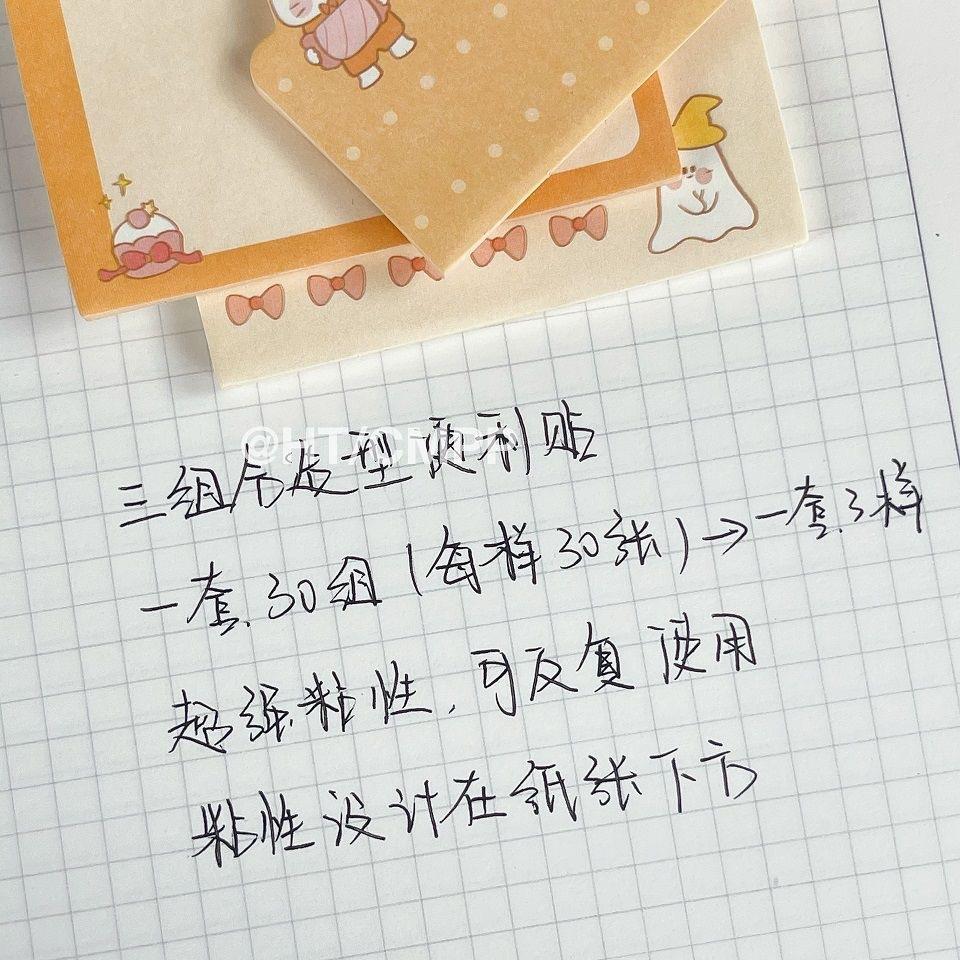 三组合造型便利贴
一套30组(每样30张)→一套3样
超强粘性,可反复使用
粘性设计在纸张下方